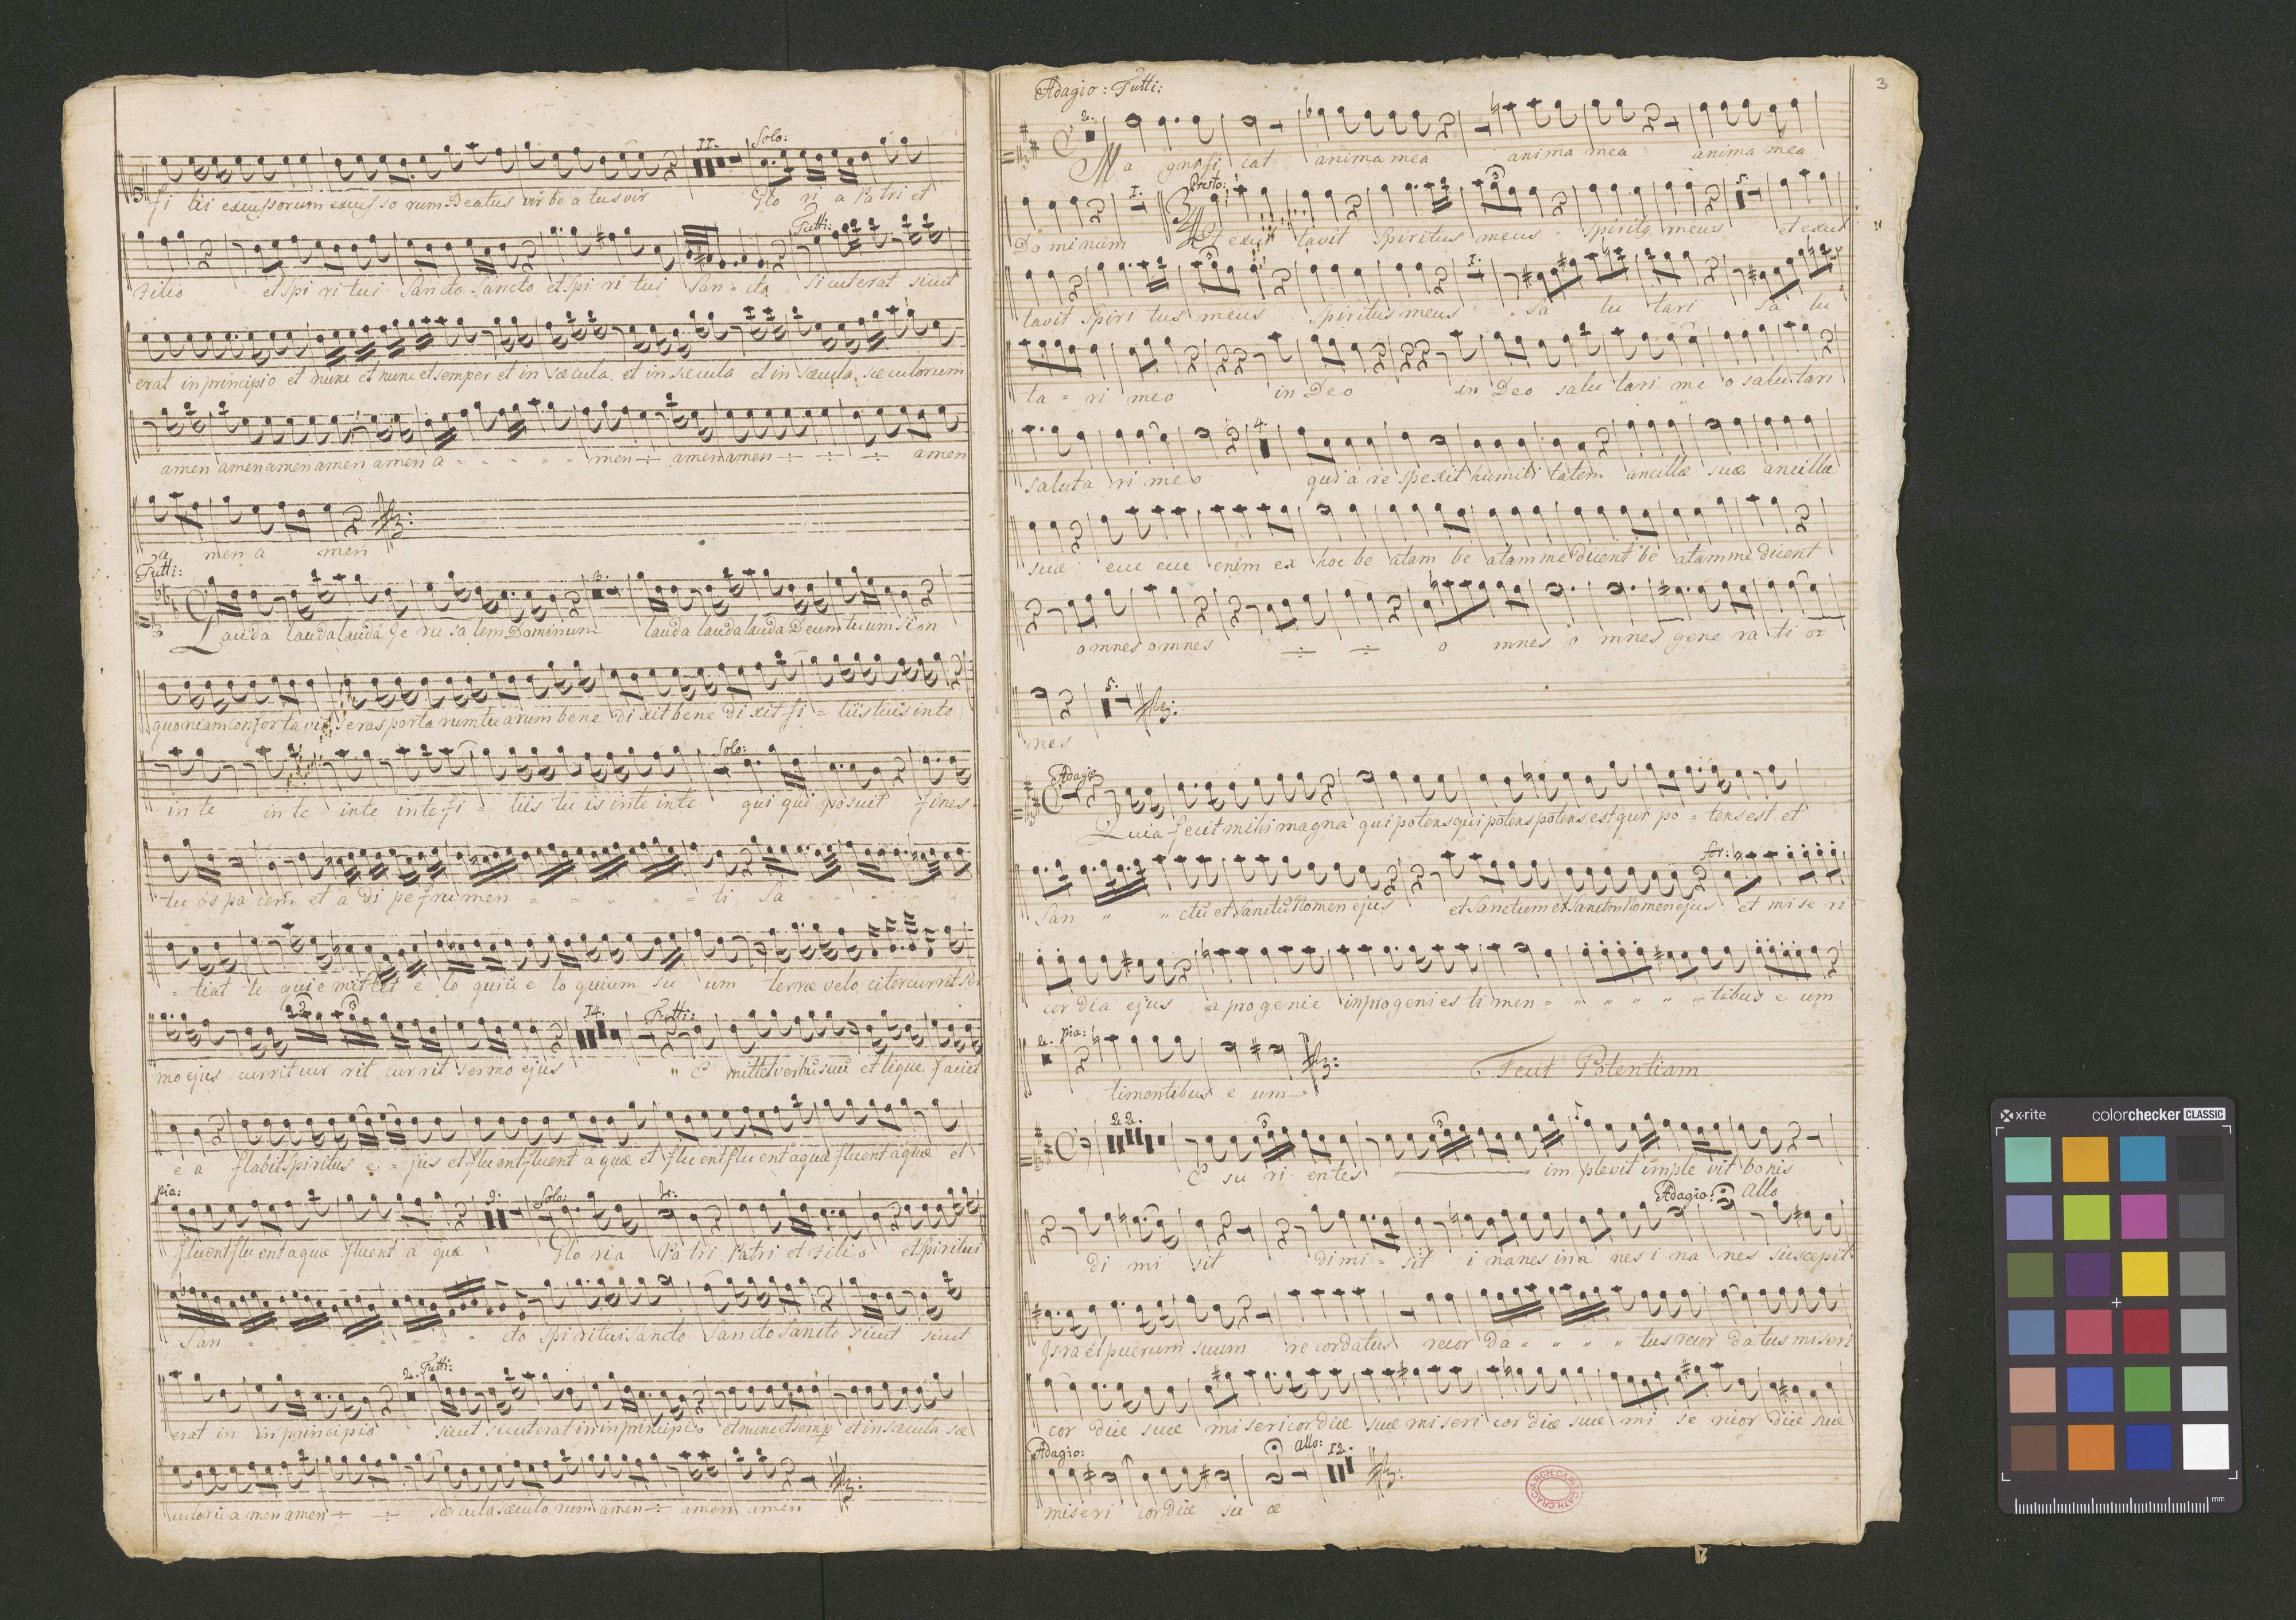 II. Solo:
fi lii excussorum excus so rum Beatus vir be a tus vir Glo ri a Patri et
Tutti:
Filio et Spi ri tui Sancto Sancto et Spi ri tui San - cto Sicut erat sicut
erat in principio et nunc et nunc et semper et in sæcula et in sæcula et in sæcula sæculorum
amen amen amen amen amen a - - - - men ÷ amen amen ÷ ÷ ÷ amen
a men a men
Tutti: 3.
Lauda lauda lauda Je ru sa lem Dominum lauda lauda lauda Deum tuum Sion
quoniam confortavit seras portarum tuarum bene di xit bene di xit fi - liis tuis in te
Solo:
in te in te in te in te fi - liis tu is in te in te qui qui posuit fines
tu os pacem et a di pe frumen - - - - - - ti Sa - - -
- tiat te qui e mittit e lo quiũ e lo quium su um terræ velo citer currit ser
14. Tutti:
mo ejus currit cur rit currit sermo ejus " E mittet verbũ suũ et lique faciet
e a flabit Spiritus e - jus et fluent fluent aquæ et fluent fluent aquæ fluent aquæ et
pia: 9. Solo: tr:
fluent flu ent aquæ fluent a quæ Glo ria Patri Patri et Filio et Spiritui
San - - - - - - - cto Spiritui Sancto Sancto Sancto sicut sicut
2. Tutti:
erat in in principio sicut sicut erat in in principio et nunc et semp et in sæcula sæ
culorũ amen amen ÷ ÷ sæcula sæculo rum amen ÷ amen amen
3
Adagio: Tutti:
2.
Ma gnifi cat anima mea anima mea anima mea
I. Presto: 5.
Dominum Et exul tavit Spiritus meus spiritq meus et exul
I.
tavit Spiri tus meus Spiritus meus Sa lu tari sa lu
ta - ri meo in Deo in Deo salu tari me o salutari
4.
saluta ri meo quia re spexit humili tatem ancillæ suæ ancillæ
suæ ecce ecce enim ex hoc be atam be atam me dicent be atam me dicent
omnes omnes ÷ ÷ o mnes o mnes gene ra ti o
5.
nes
Adagio
Quia fecit mihi magna qui potens qui potens potens est qui po - tens est et
for:
San " " ctũ et Sanctũ Nomen ejus et Sanctum et Sanctm Nomen ejus et mi se ri
cor dia ejus a progenie in progenies ti men - " " " " " tibus e um
2. pia:
timentibus e um Fecit Potentiam
22.
E su ri entes " " im plevit imple vit bonis
Adagio: Allo
di mi sit dimi - sit i nanes ina nes i na nes suscepit
Israel puerum suum re cordatus recor da " " " " tus recor datus miseri
cor diæ suæ misericordiæ suæ miseri cor diæ suæ mi se ricor diæ suæ
Adagio: Allo: 12.
miseri cordiæ su æ
x-rite colorchecker CLASSIC
mm